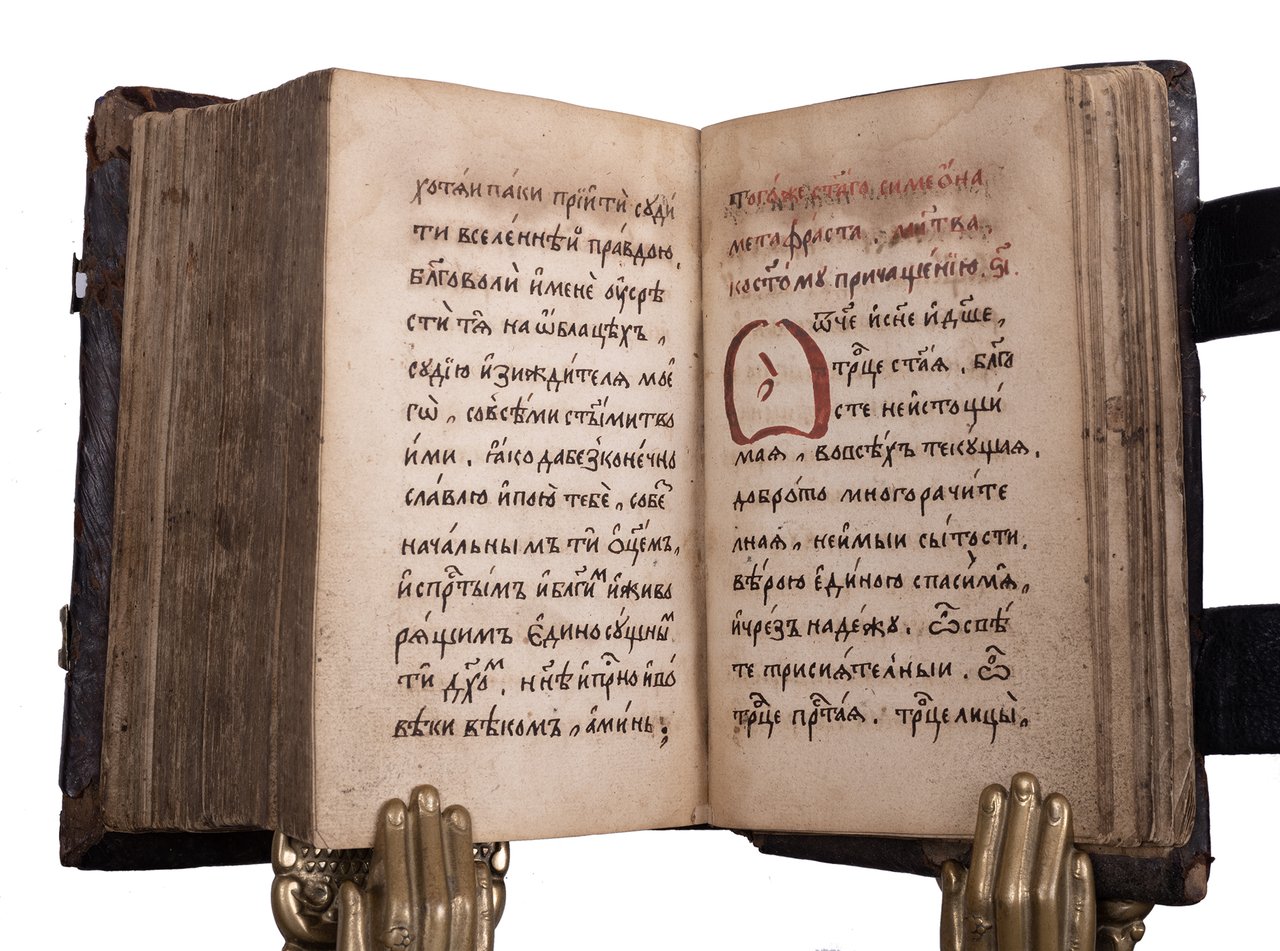 хотѧ́и па́ки прїи̑тѝ суди́
ти вселе́ннѣ́й пра́вдою.
бл҃говолѝ и҆менѐ оу҆срѣ
сти́ тѧ̑ на ѡ҆́блацѣ́хъ,
судїю и҆зижди́телѧ мое
гѡ̀, совсѣ́ми ст҃ы́ми тво
и́ми. ꙗ҆́ко да безконе́чно
сла́влю и҆ пою̀ тебѐ, собез
нача́льнымъ ти̑ ѻ҆ц҃е́мъ,
и҆ спрⷭ҇ты́мъ и҆ бл҃ги́мъ и҆ живо
рѧ́щимъ є҆дино су́щны́м
ти̑ дх҃омъ. нн҃ѣ и҆ прⷭ҇но и҆ во́
вѣ́ки вѣ́комъ, а҆ми́нь.
Того́же ст҃а́го симеѡ́на
метафра́ста. мл҃тва,
ко ст҃о́му причаще́нїю. ѕ҃і.
Ѻ ѿч҃е и҆ сн҃е и҆ дш҃е,
трⷪ҇це ст҃а́ѧ. бл҃го
сте неи҆стощи́
маѧ, во всѣ́хъ теку́щаѧ.
доброто много рачи́те
лнаѧ, неи́мыи сы́тости.
вѣ́рою є҆ди́ною спаси́ мѧ̑,
и҆ чре́зъ наде́жу. ѽ свѣ́
те трисиѧ́телныи. ѽ
трⷪ҇це прⷭ҇та́ѧ. трⷪ҇це лицы̀,